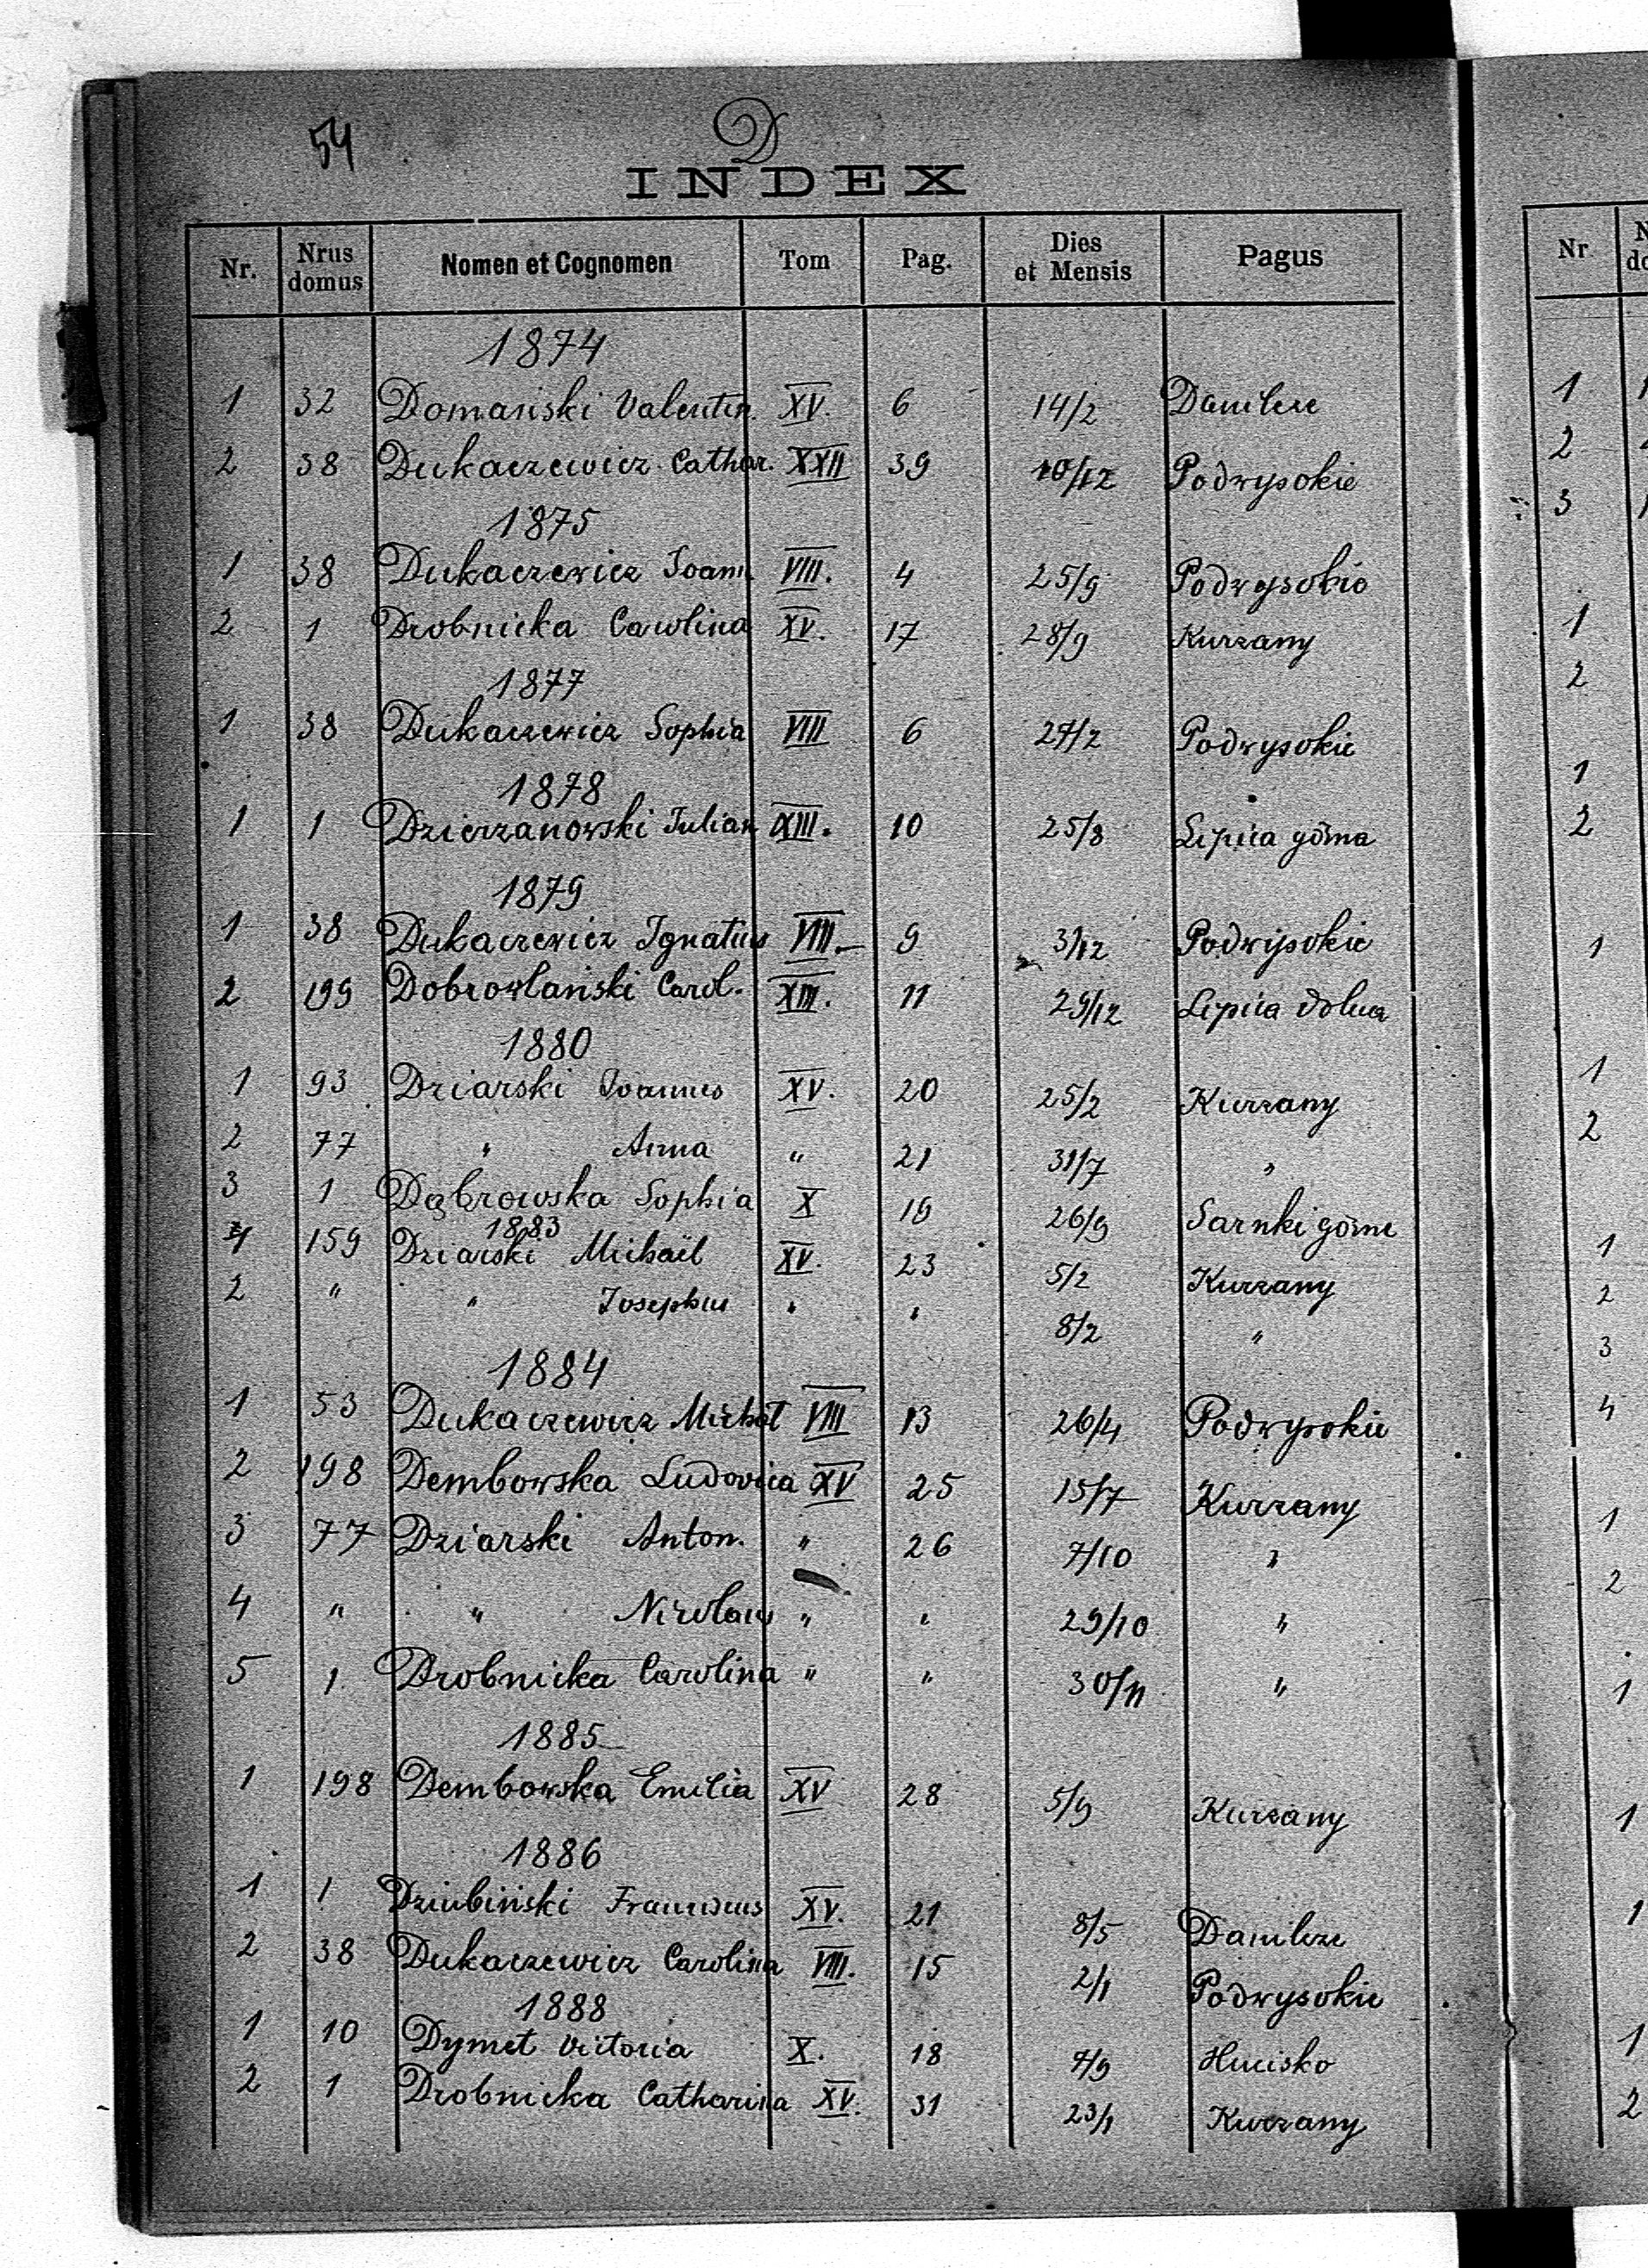 54
D
INDEX
Nr. Nrus domus Nomen et Cognomen Tom Pag. Dies et Mensis Pagus
1874
1 32 Domański Valentin. XV. 6 14/2 Danilcze
2 38 Dukaczewicz Cathar. XXII 39 10/12 Podwysokie
1875
1 38 Dukaczewicz Joann VIII. 4 25/9 Podwysokie
2 1 Drobnicka Carolina XV. 17 28/9 Kurzany
1877
1 38 Dukaczewicz Sophia VIII 6 27/2 Podwysokie
1878
1 1 Dzierzanowski Julian XIII. 10 25/8 Lipica górna
1879
1 38 Dukaczewicz Ignatius VIII. 9 3/12 Podwysokie
2 199 Dobrowlański Carol. XIII. 11 29/12 Lipica dolna
1880
1 93 Dziarski Joannes XV. 20 25/2 Kurzany
2 77 " Anna " 21 31/7 "
3 1 Dąbrowska Sophia X 16 26/9 Sarnki górne
1883
1 159 Dziarski Michaël XV. 23 5/2 Kurzany
2 " " Josephus " " 8/2 "
1884
1 53 Dukaczewicz Michał VIII 13 26/4 Podwysokie
2 198 Dembowska Ludovica XV 25 15/7 Kurzany
3 77 Dziarski Anton. " 26 7/10 "
4 " " Nicolaus " " 29/10 "
5 1. Drobnicka Carolina " " 30/11 "
1885
1 198 Dembowska Emilia XV 28 5/9 Kurzany
1886
1 1 Dziubiński Franciscus XV. 21 8/5 Danilcze
2 38 Dukaczewicz Carolina VIII. 15 2/1 Podwysokie
1888
1 10 Dymet Victoria X. 18 7/9 Hucisko
2 1 Drobnicka Catharina XV. 31 23/1 Kurzany
Nr
1
2
3
1
2
1
2
1
1
2
1
2
3
4
1
2
1
1
1
1
2